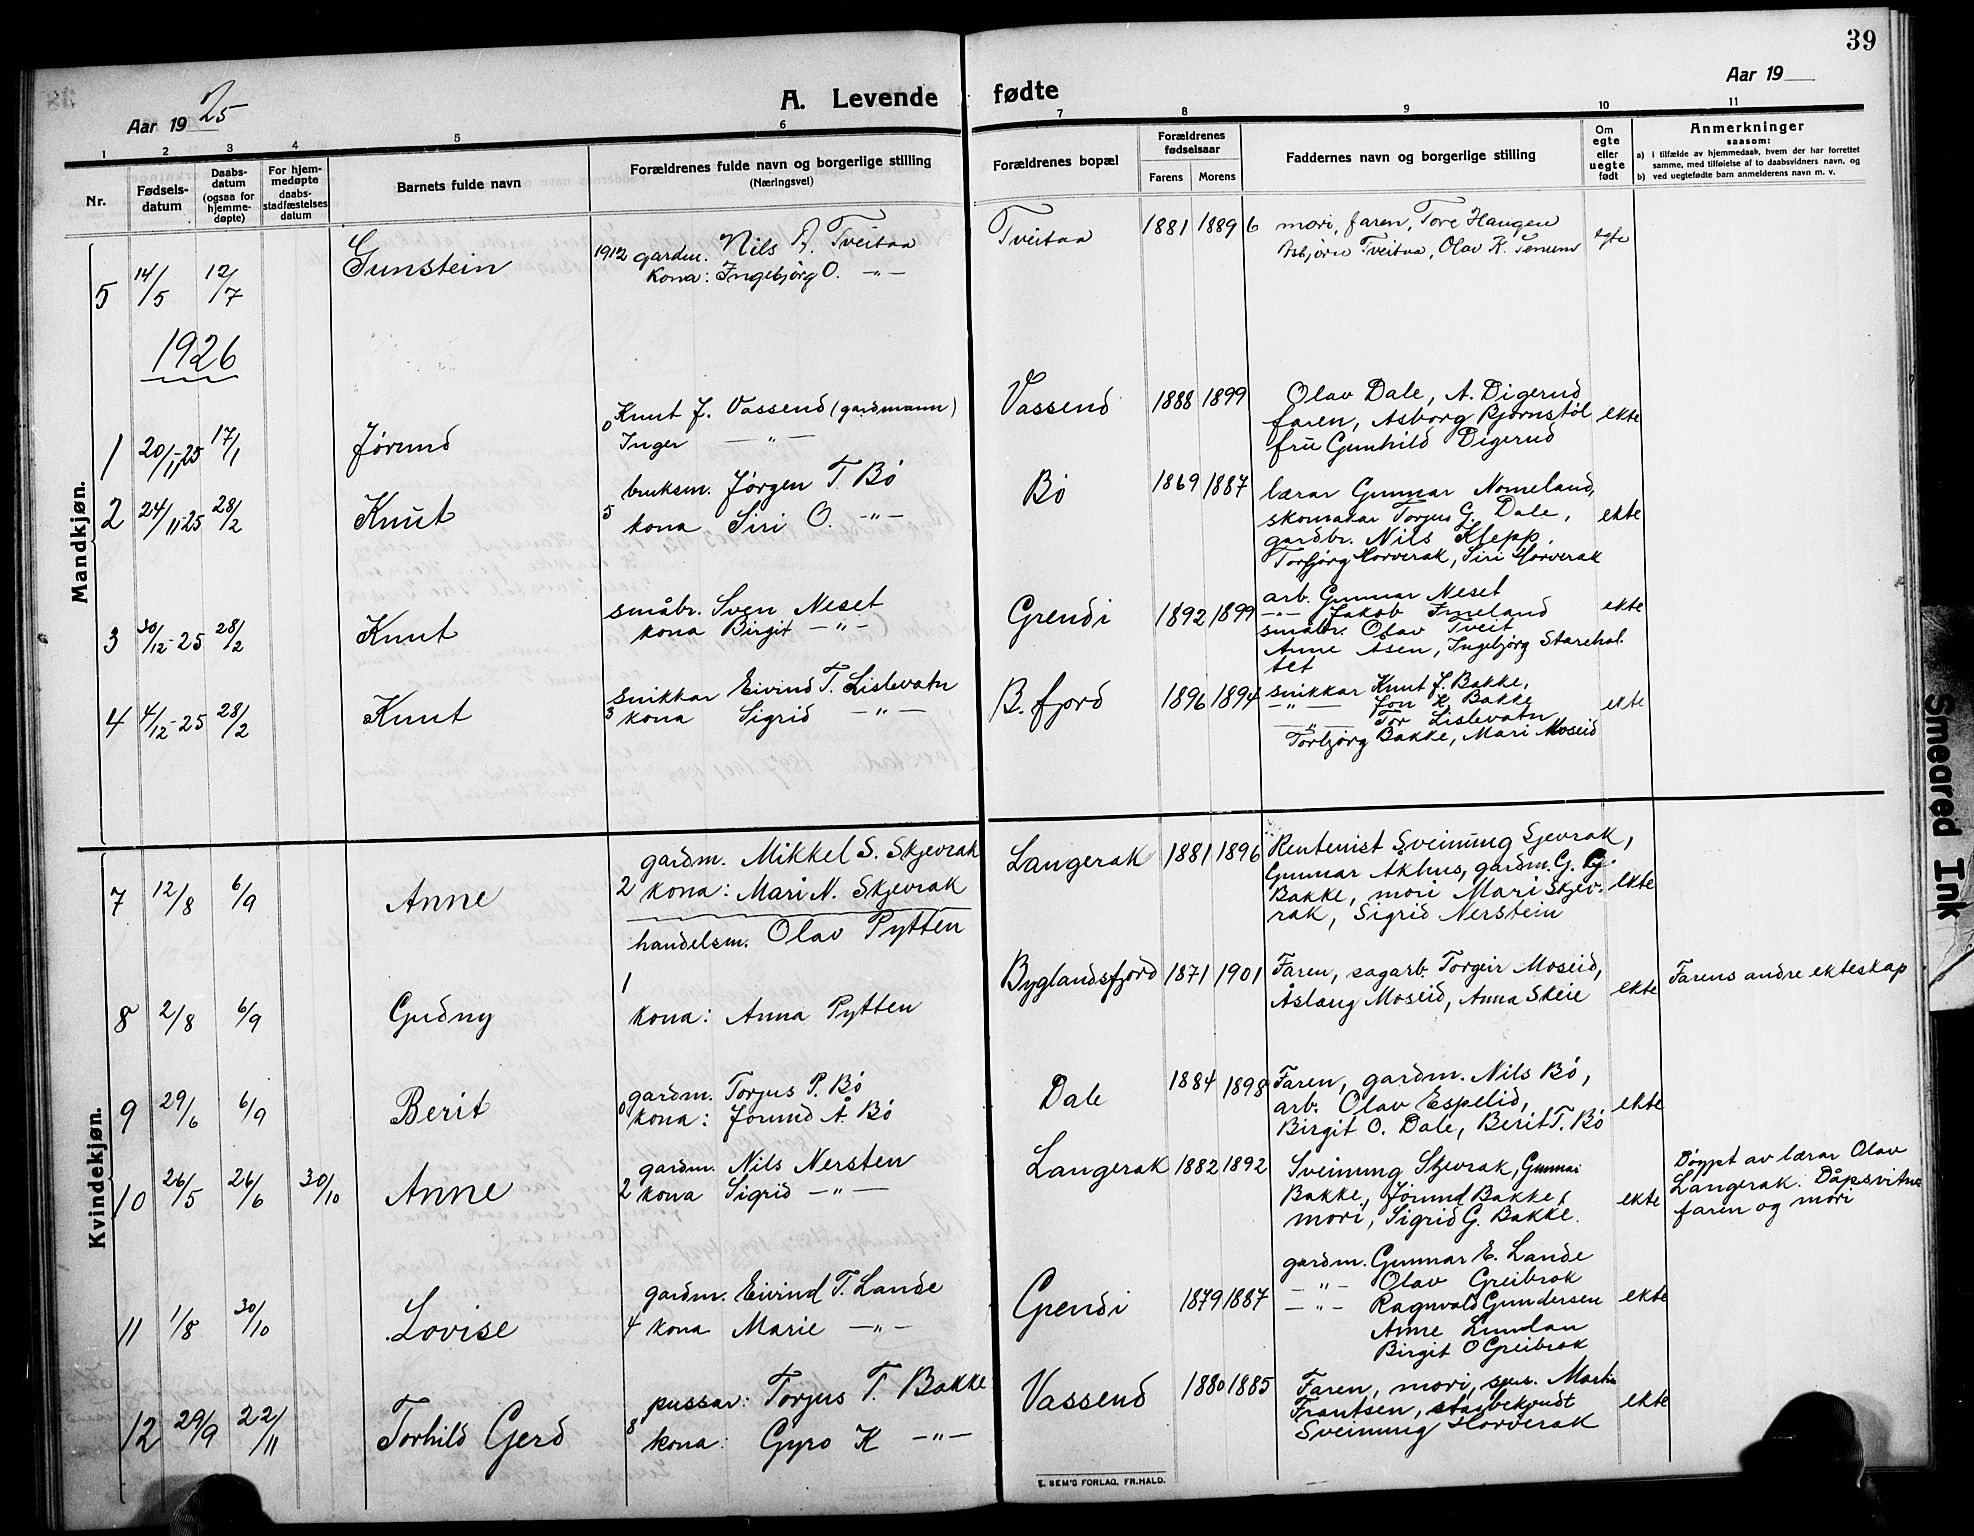 39
Aar 1925
A. Levende fødte
Aar 19
1 2 3 4 5 6 7 8 9 10 11
Nr.
Fødsels-
datum
Daabs-
datum
(ogsaa for
hjemme-
døpte)
For hjem-
medøpte
daabs-
stadfæstelses
datum
Barnets fulde navn
Forældrenes fulde navn og borgerlige stilling
(Næringsvei)
Forældrenes bopæl
Forældrenes
fødselsaar
Farens Morens
Faddernes navn og borgerlige stilling
Om
egte
eller
uegte
født
Anmerkninger
saasom:
a) I tilfælde av hjemmedaab, hvem der har forrettet
samme, med tilføielse af to daabsvidners navn, og
b) ved uegtefødte barn anmelderens navn m. v.
Mandkjøn.
5 14/5 12/7 Gunstein
1912 gardm. Nils A. Tveitaa
kona: Ingebjørg O. -"-
Tveitaa 1881 1889 6
mori, faren, Tore Haugen
Asbjørn Tveitaa, Olav K.
egte
1926
1 20/11-25 17/1 Jørund
Knut J. Vassend (gardmann)
0 Inger -"-
Vassend 1888 1899
Olav Dale, A. Digerud
faren, Asborg Bjørnstøl
fru Gunhild Digerud
ekte
2 24/11-25 28/2 Knut
bruksm. Jørgen T. Bø
5 kona Siri O. -"-
Bø 1869 1887
lærar Gunnar Nomeland,
skomakar Torjus G. Dale,
gardbr. Nils Klepp.
Torbjørg Horverak, Siri Horverak
ekte
3 30/12-25 28/2 Knut
småbr. Sven Neset
kona Birgit -"-
Grendi 1892 1899
arb. Gunnar Neset
-"- Jakob Frøeland
småbr. Olav Tveit
Anne Åsen, Ingebjørg Starehol
tet
ekte
4 4/12-25 28/2 Knut
snikkar Eivind T. Lislevatn
3 kona Sigrid -"-
B. fjord 1896 1894
snikkar Knut J. Bakke,
-"- Jon K. Bakke
-"- Tor Lislevatn
Torbjørg Bakke, Mari Moseid
ekte
Kvindekjøn.
7 12/8 6/9 Anne
gardm. Mikkel S. Skjevrak
2 kona: Mari N. Skjevrak
Langerak 1881 1896
Rentenist Sveinung Sjevrak,
Gunnar Akhus, gardm. G. G.
Bakke, mori Mari Skjev-
rak, Sigrid Nerstein
ekte
8 2/8 6/9 Gudny
handelsm. Olav Pytten
1
kona: Anna Pytten
Byglandsfjord 1871 1901
Faren, sagarb. Torgeir Moseid,
Åslaug Moseid, Anna Skeie
ekte
Farens andre ekteskap
9 29/6 6/9 Berit
gardm. Torjus P. Bø
0 kona: Jorund Å. Bø
Dale 1884 1898
Faren, gardm. Nils Bø,
arb. Olav Espelid,
Birgit O. Dale, Berit T. Bø
ekte
10 26/5 26/6 30/10 Anne
gardm. Nils Nersten
2 kona Sigrid -"-
Langerak 1882 1892
Sveinung Skjevrak, Gunnar
Bakke, Jørund Bakke,
mori, Sigrid G. Bakke.
ekte
Døypt av lærar Olav
Langerak. Dåpsvitne
faren og mori
11 1/8 30/10 Lovise
gardm. Eivind T. Lande
4 kona Marie -"-
Grendi 1879 1887
gardm. Gunnar E. Lande
-"- Olav Greibrok
-"- Ragnvald Gundersen
Anne Lundan
Birgit O Greibrok
ekte
12 29/9 22/11 Torhild Gerd
pussar: Torjus T. Bakke
8 kona: Gyro K -"-
Vassend 1880 1885
Faren, mori, Martin
Frantsen,
Sveinung Horverak
ekte
E. SEM'S FORLAG, FR.HALD.
Smeared Ink